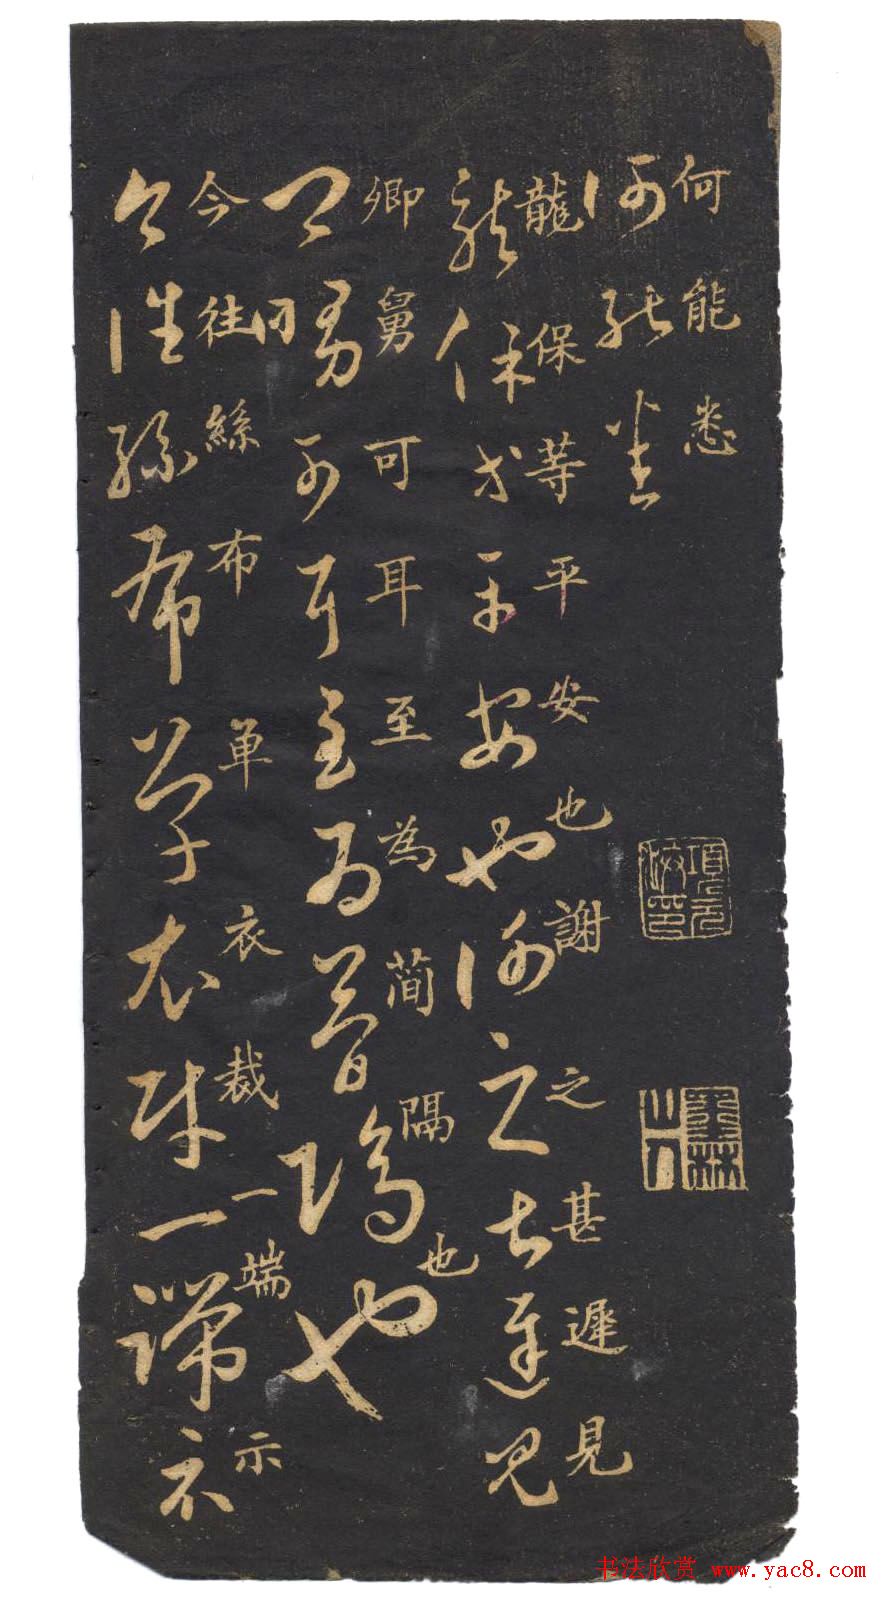 何能悉
何能悉
龍保等平安也謝之甚遲見
龍保等平安也謝之甚遲見
卿舅可耳至為簡隔也
卿舅可耳至為簡隔也
今往絲布單衣裁一端示
今往絲布單衣裁一端示
項元汴印
墨林山人
书法欣赏 www.yac8.com